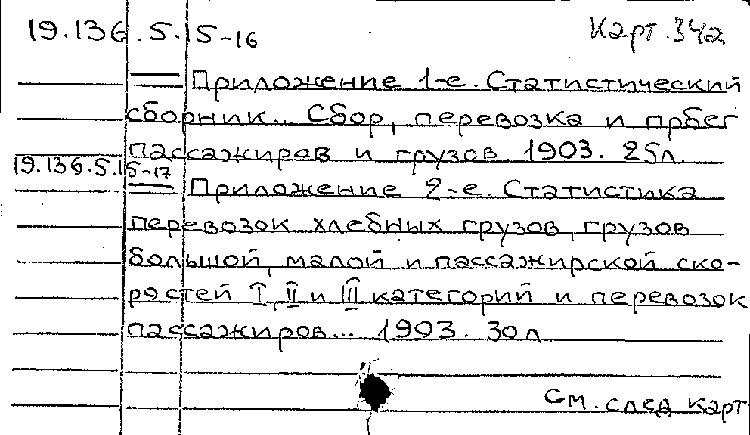 19.136.5.15-16 Карт. 34а
— Приложение 1-е. Статистический
сборник... Сбор, перевозка и прбег
пассажиров и грузов 1903. 25л.
19.136.5.15-17
— Приложение 2-е. Статистика
перевозок хлебных грузов, грузов
большой, малой и пассажирской ско-
ростей I, II и III категорий и перевозок
пассажиров... 1903. 30л
См. след карт